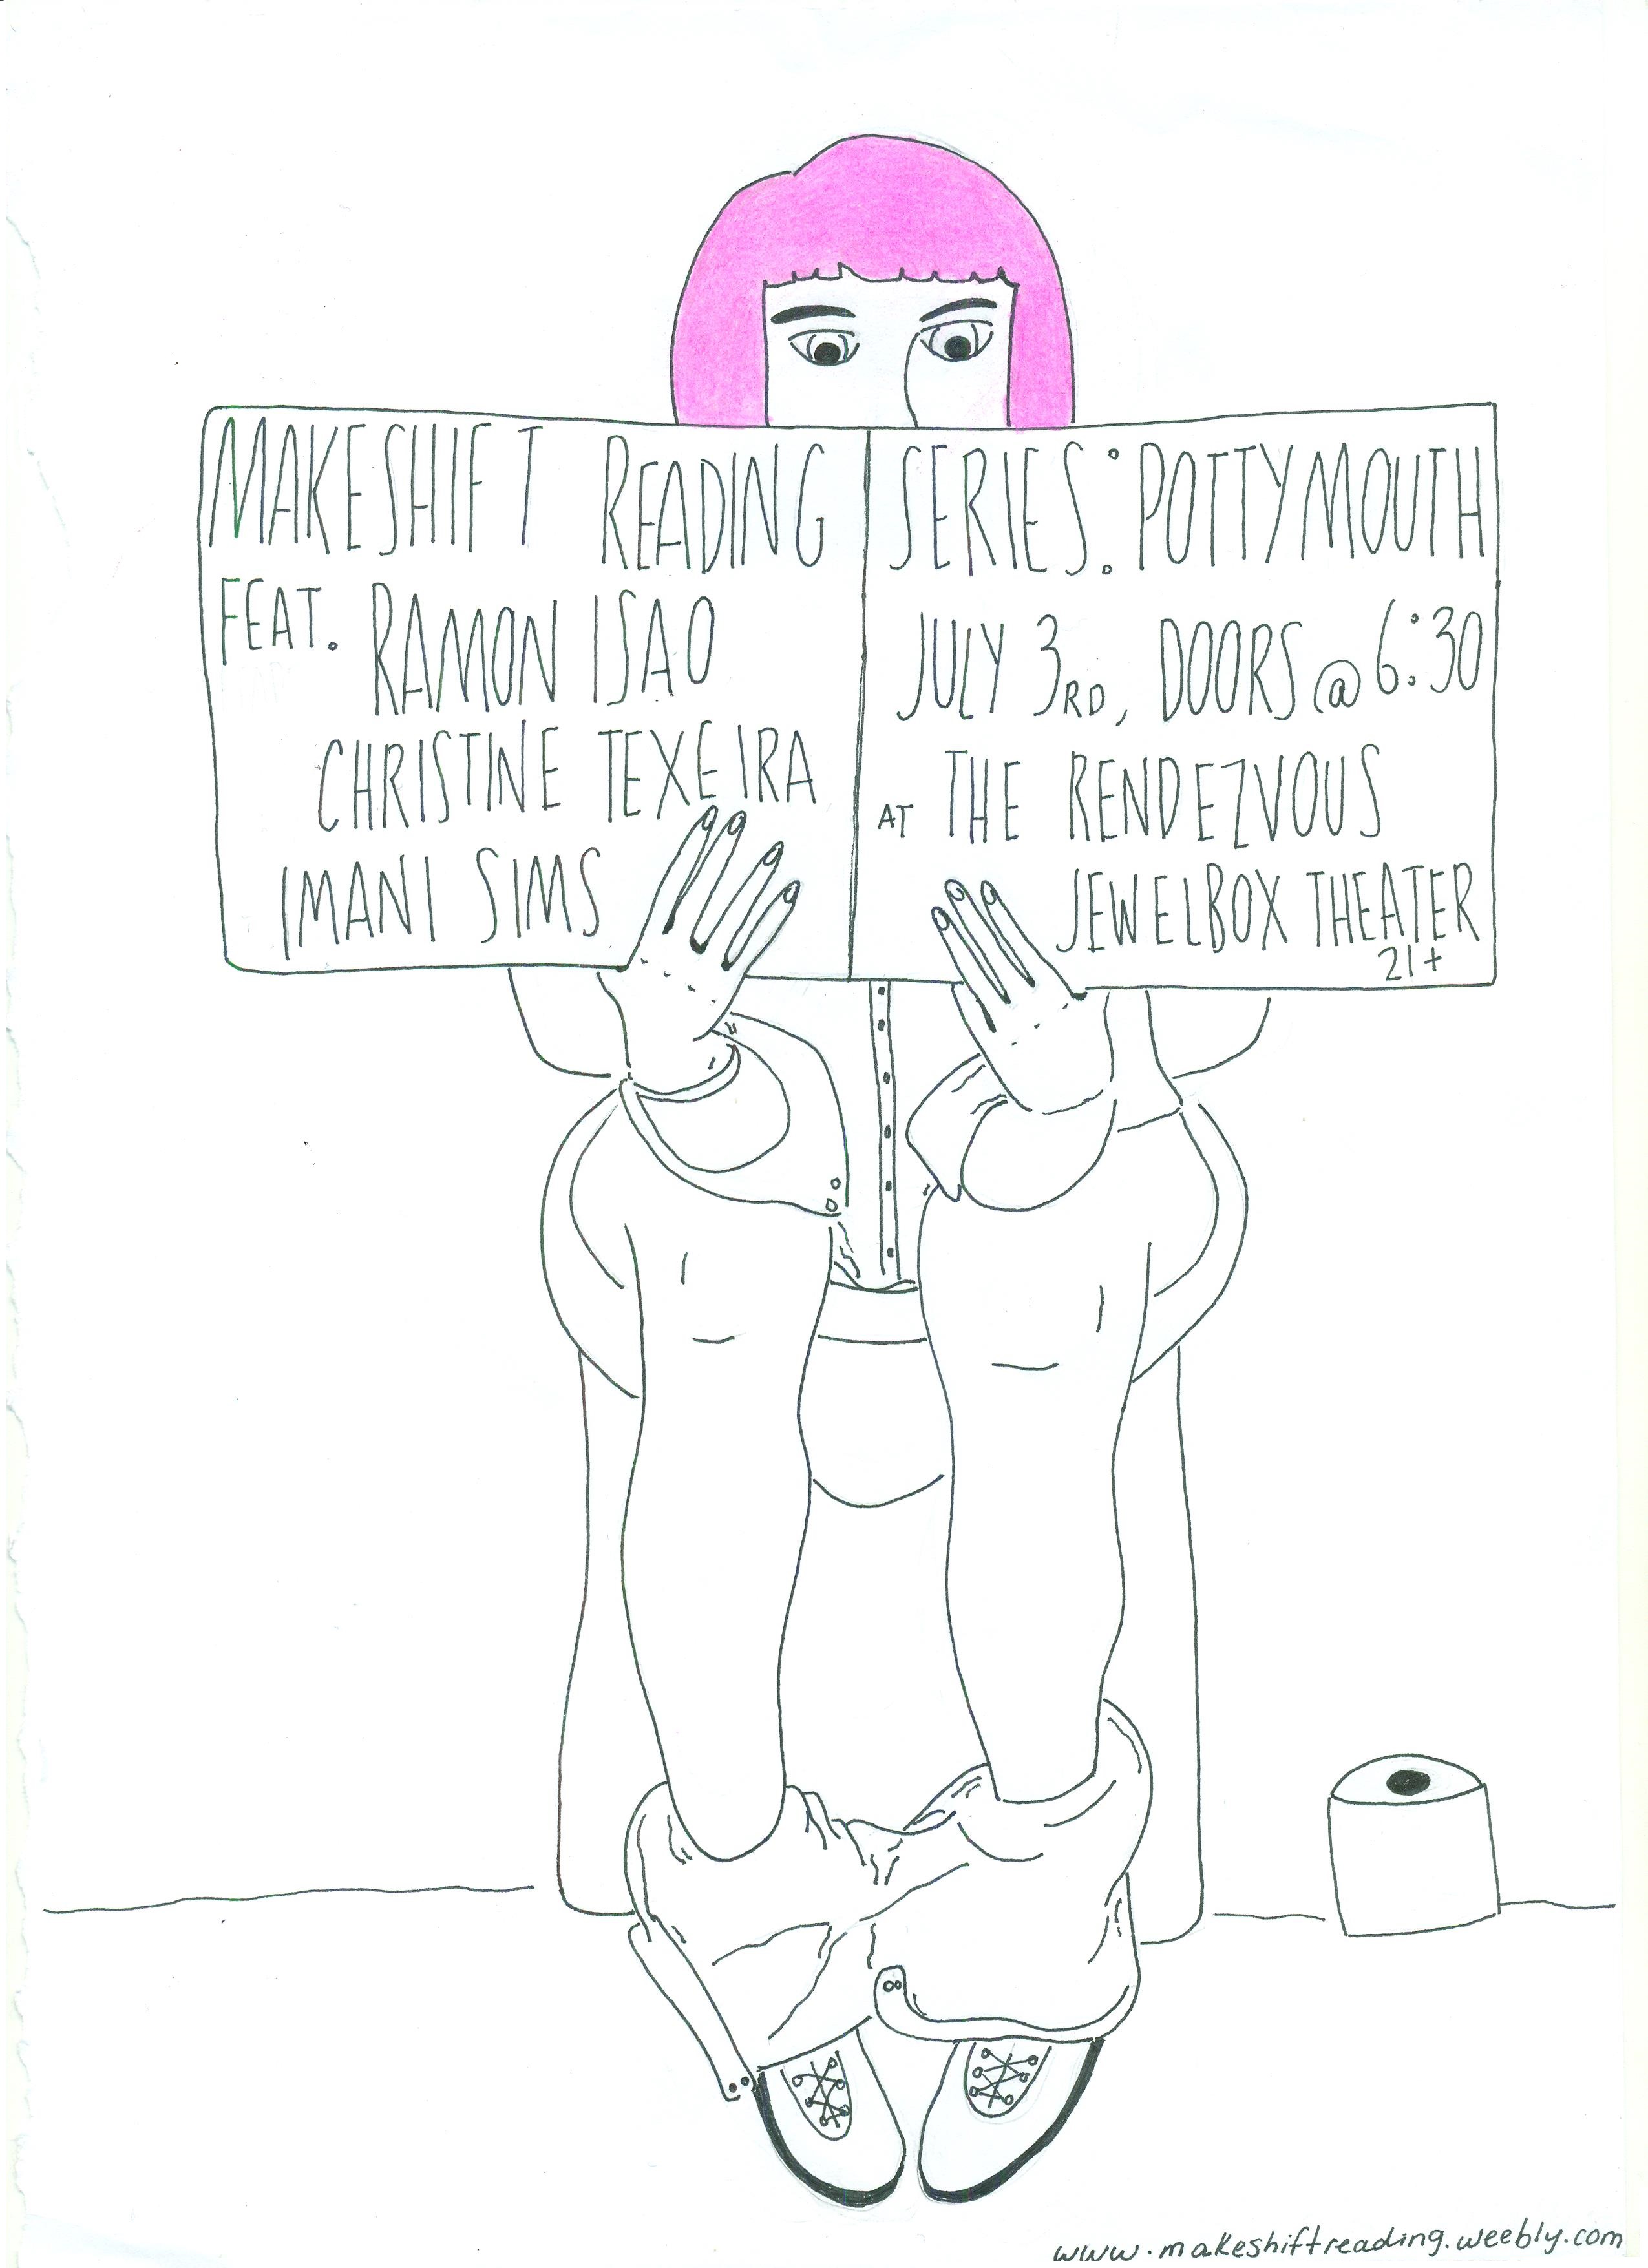 MAKESHIFT READING SERIES: POTTYMOUTH
FEAT. RAMON ISAO
CHRISTINE TEXEIRA
IMANI SIMS
JULY 3RD, DOORS @ 6:30
AT THE RENDEZVOUS
JEWELBOX THEATER
21+
www.makeshiftreading.weebly.com